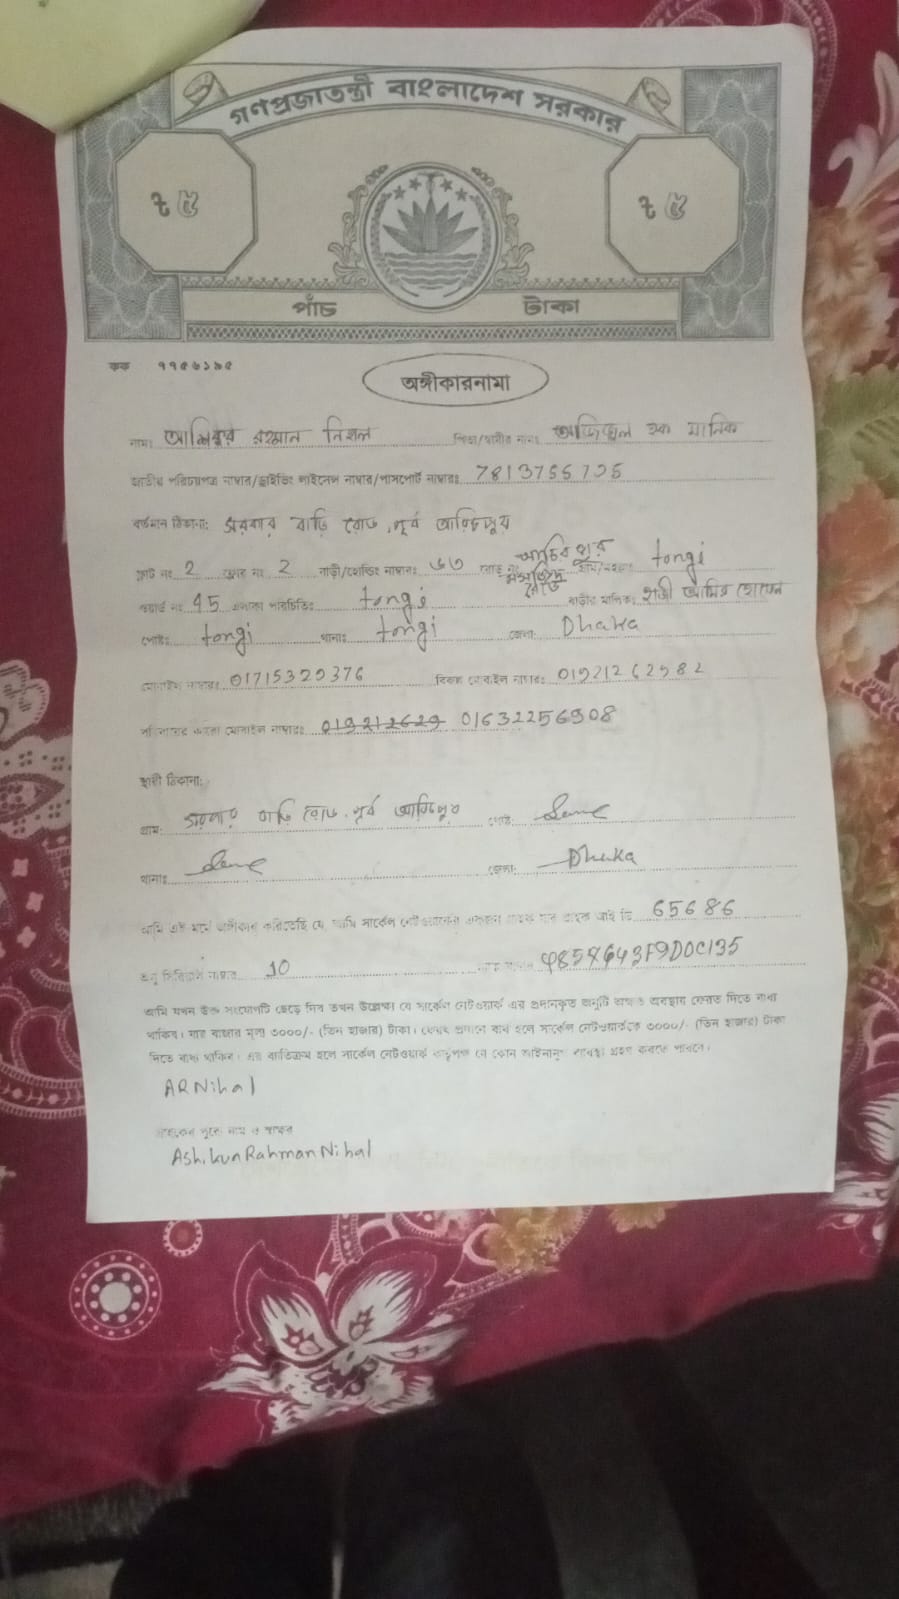 গণপ্রজাতন্ত্রী বাংলাদেশ সরকার
৳ ৫ ৳ ৫
পাঁচ টাকা
কক ৭৭৫৬১৯৫
অঙ্গীকারনামা
নামঃ রহমান পিতা/স্বামীর নামঃ হক মানিক
জাতীয় পরিচয়পত্র নাম্বার/ড্রাইভিং লাইসেন্স নাম্বার/পাসপোর্ট নাম্বারঃ
বর্তমান ঠিকানা: সরকার বাড়ি রোড, পূর্ব
ফ্লাট নং 2 ফ্লোর নং 2 বাড়ী/হোল্ডিং নাম্বারঃ ৬৩ রোড নং মসজিদ রোড গ্রাম/মহল্লাঃ tongi
ওয়ার্ড নং 45 এলাকা পরিচিতিঃ tongi বাড়ীর মালিকঃ হাজী আমির হোসেন
পোষ্টঃ tongi থানাঃ tongi জেলা: Dhaka
মোবাইল নাম্বারঃ 01715329376 বিকল্প মোবাইল নাম্বারঃ 01921262982
মোবাইল নাম্বারঃ 01632256908
স্থায়ী ঠিকানা:
গ্রাম: বাড়ি রোড, পূর্ব পোষ্ট: Same
থানাঃ Same জেলা: Dhaka
আমি এই মর্মে অঙ্গীকার করিতেছি যে, আমি সার্কেল নেটওয়ার্কের একজন গ্রাহক যার গ্রাহক আই ডি 65686
অনু সিরিয়াল নাম্বার 10
আমি যখন উক্ত সংযোগটি ছেড়ে দিব তখন উল্লেখ্য যে সার্কেল নেটওয়ার্ক এর প্রদানকৃত অনুটি অক্ষত অবস্থায় ফেরত দিতে বাধ্য
থাকিব। যার বাজার মূল্য ৩০০০/- (তিন হাজার) টাকা। ফেরত প্রদানে ব্যর্থ হলে সার্কেল নেটওয়ার্ককে ৩০০০/- (তিন হাজার) টাকা
দিতে বাধ্য থাকিব। এর ব্যতিক্রম হলে সার্কেল নেটওয়ার্ক কর্তৃপক্ষ যে কোন আইনানুগ ব্যবস্থা গ্রহণ করতে পারবে।
ARNihal
গ্রাহকের পুরো নাম ও স্বাক্ষর
Ashikun Rahman Nihal